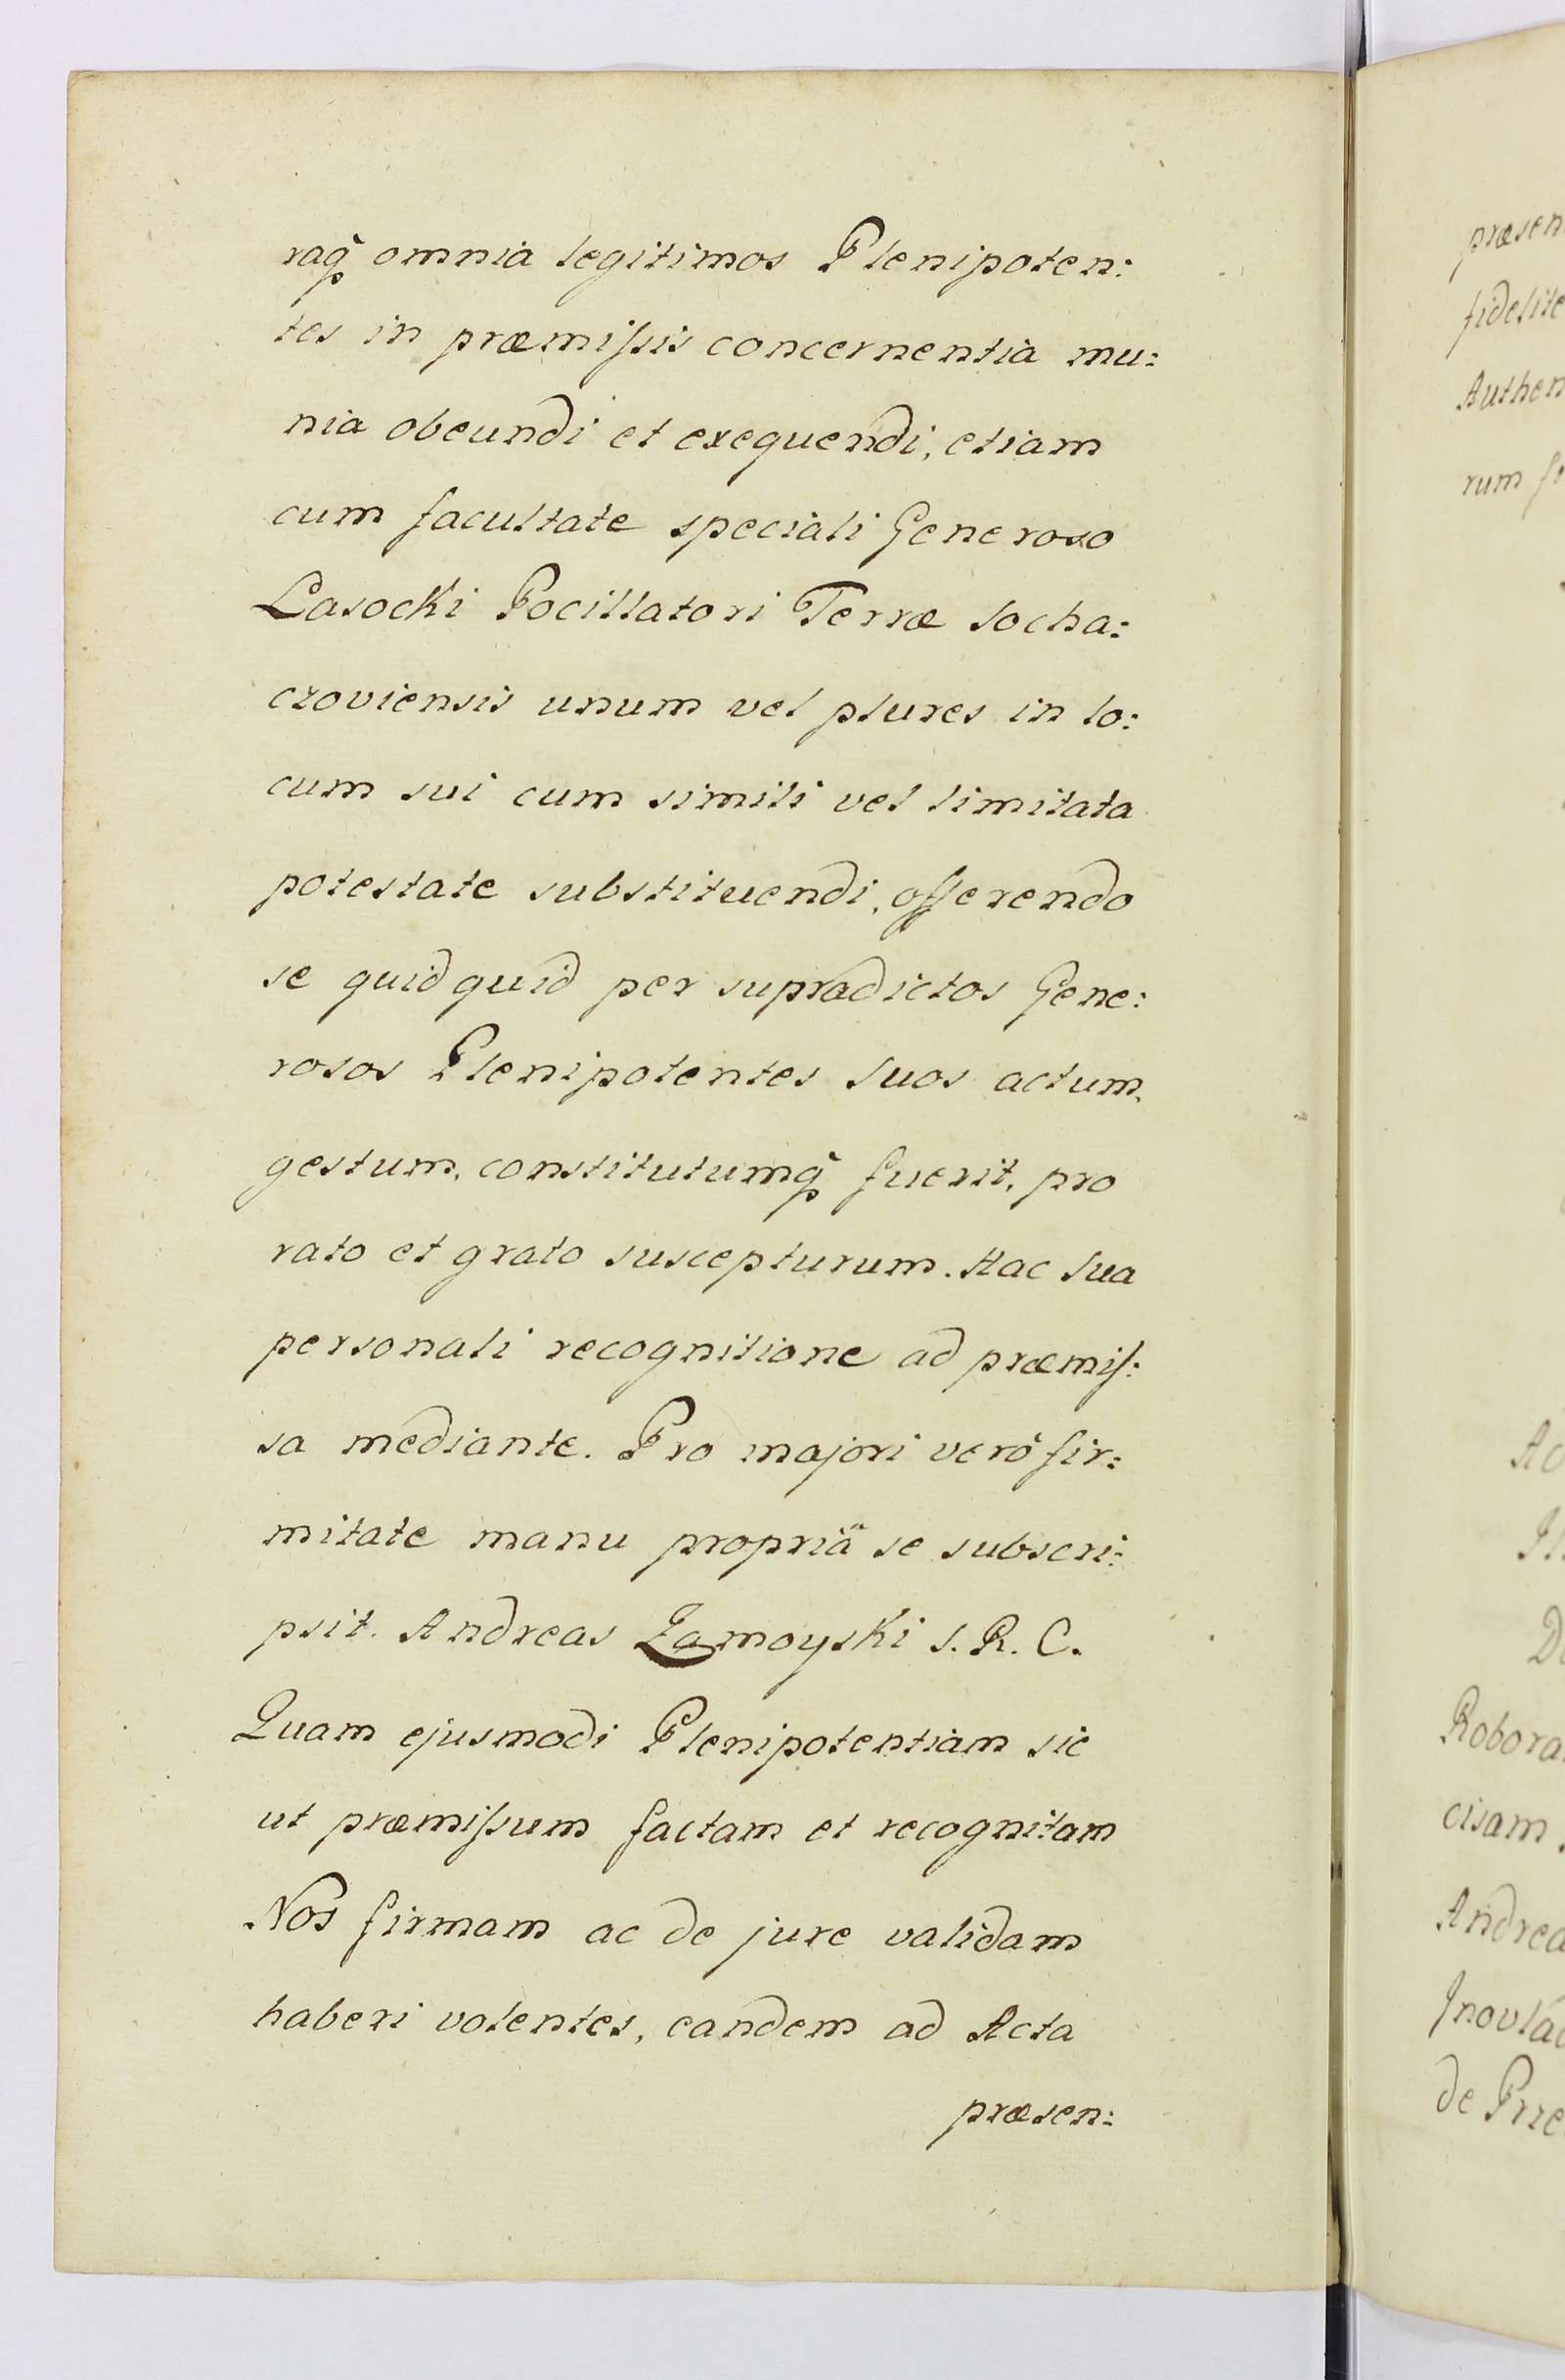 raq̃ omnia legitimos Plenipoten:
tes in præmiſsis concernentia mu:
nia obeundi et exequendi, etiam
cum facultate speciali Generoso
Lasocki Pocillatori Terræ Socha:
czoviensis unum vel plures in lo:
cum sui cum simili vel limitata
potestate substituendi, offerendo
se quidquid per supradictos Gene:
rosos Plenipotentes Suos actum,
gestum, constitutumq̃ fuerit, pro
rato et grato suscepturum. Hac Sua
personali recognitione ad præmiſ:
sa mediante. Pro majori verò fir:
mitate manu propriâ se subscri:
psit. Andreas Zamoyski S. R. C.
Quam ejusmodi Plenipotentiam sic
ut præmiſsum factam et recognitam
Nos firmam ac de jure validam
haberi volentes, eandem ad Acta
præsen:
præsen
fidelite
Authen
rum
Ac
D
Robora
cisam
Andrea
Jnovla
de Prze